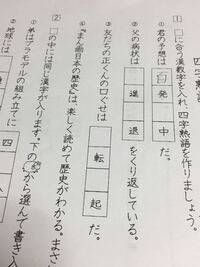 四字熟語
1 □に合う漢数字を入れ、四字熟語を作りましょう。
① 君の予想は □発□中 だ。
② 父の病状は □進□退 をくり返している。
③ 友だちの正くんの口ぐせは □転□起 だ。
2 □の中には同じ漢字が入ります。下の
④『まんが日本の歴史』は、楽しく読めて歴史がわかる。まさ
① 弟はプラモデルの組み立てに
から選んで書き入
② 地球には
四